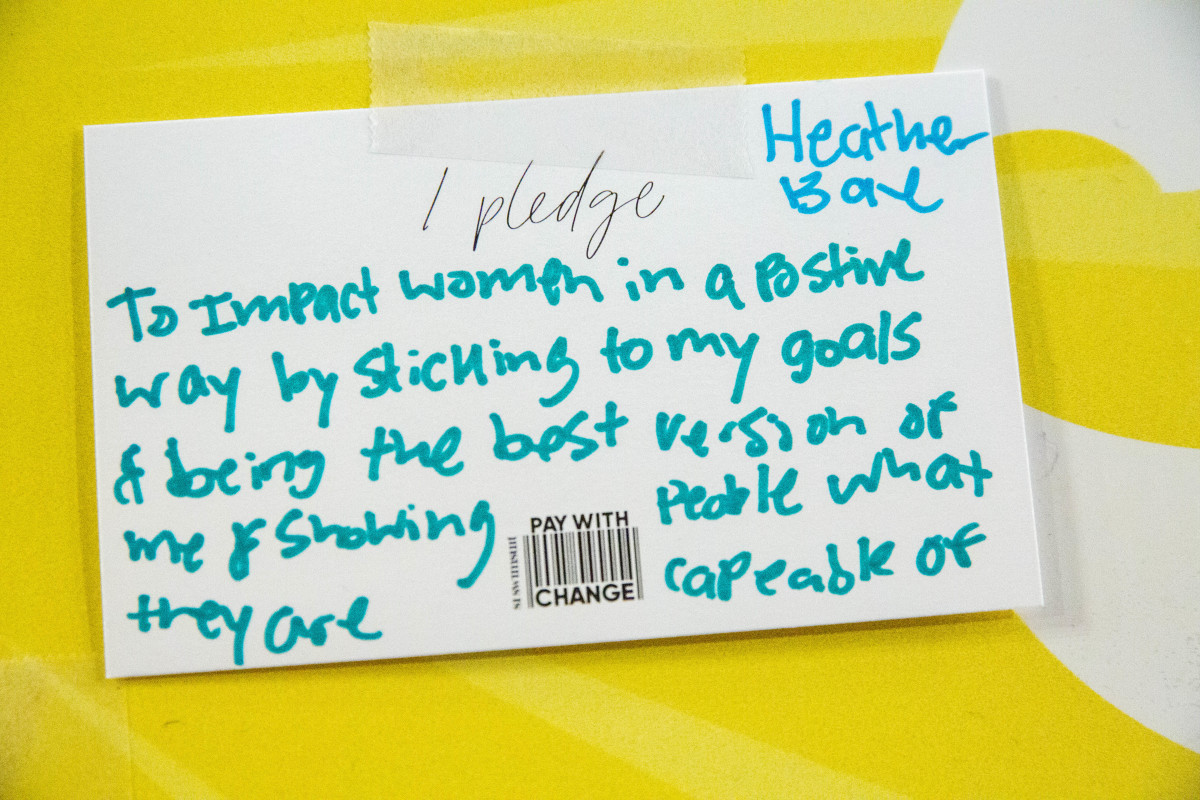 Heather
I pledge
To Impact women in a Postive
way by sticking to my goals
& being the best version of
me & showing People what
they are capeable of
PAY WITH
CHANGE